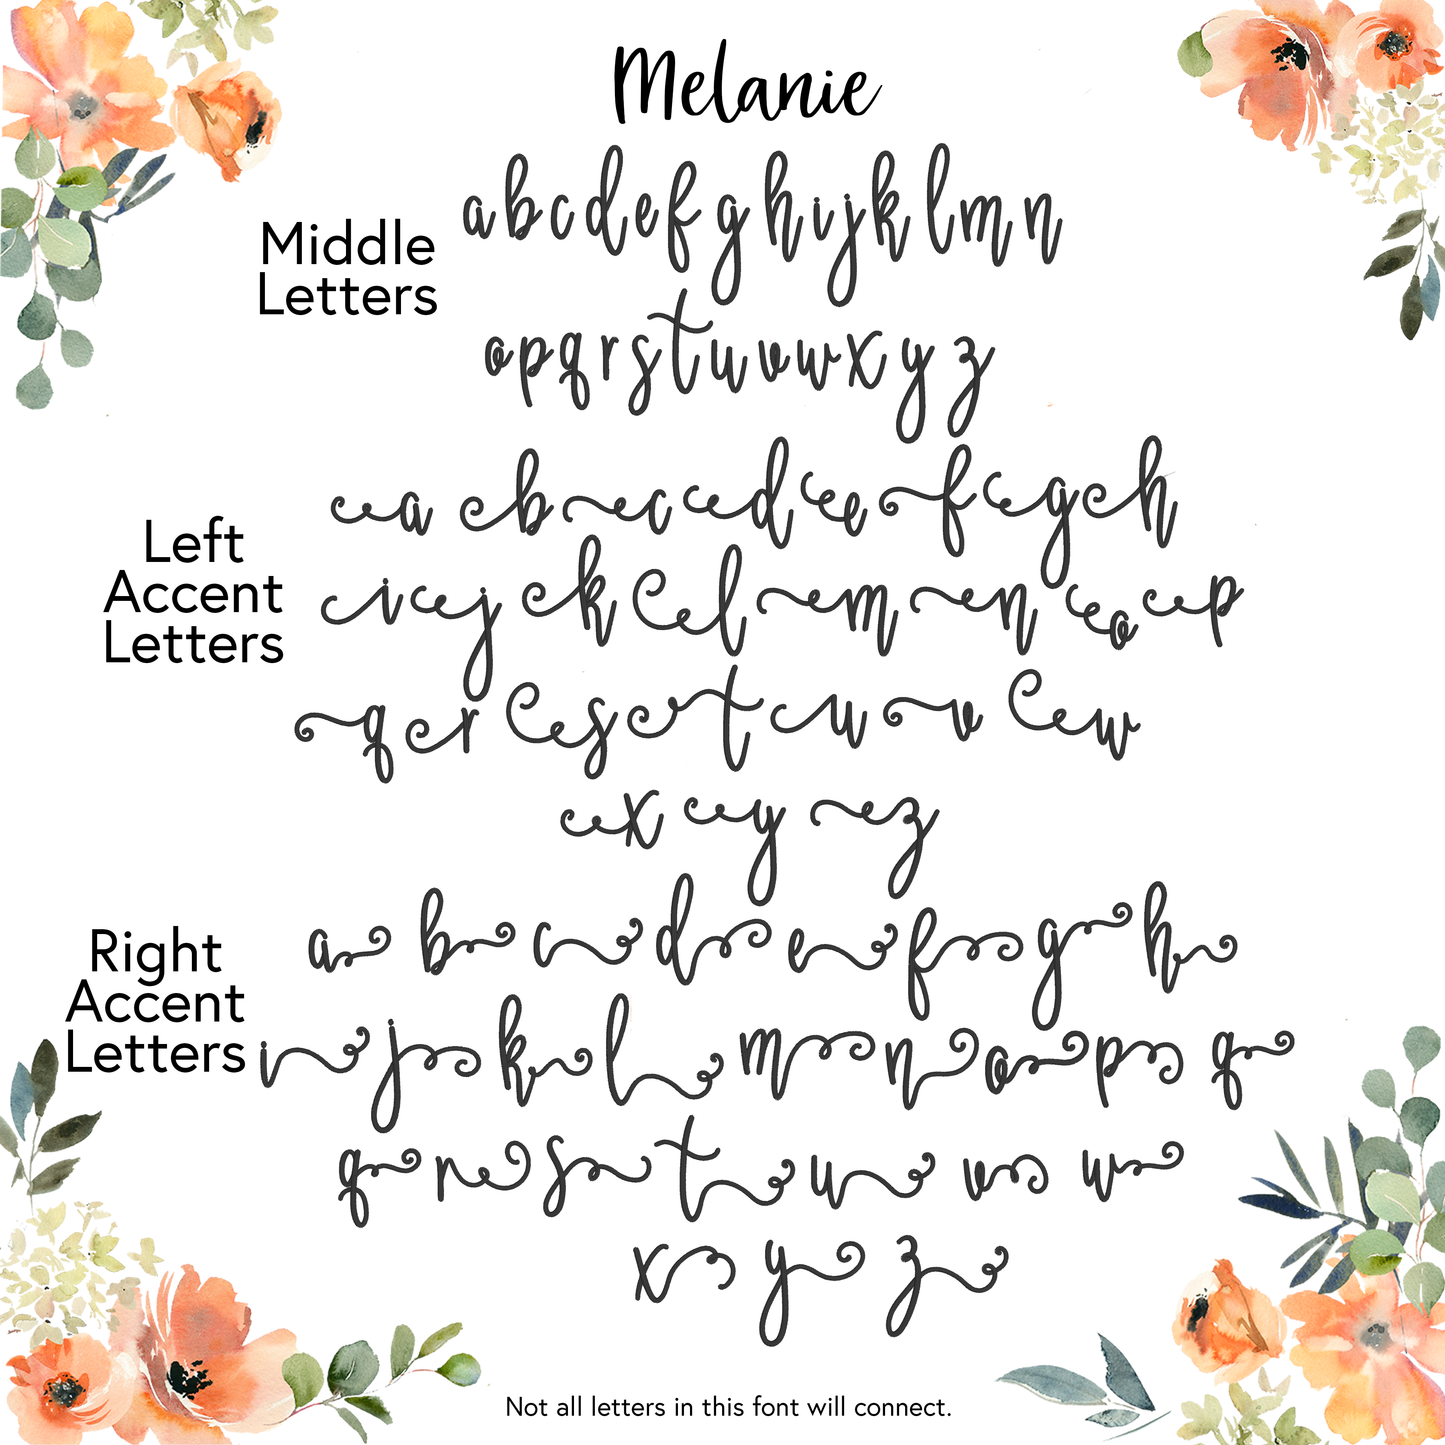 Melanie
Middle
Letters
a b c d e f g h i j k l m n
o p q r s t u v w x y z
Left
Accent
Letters
a b c d e f g h
i j k l m n o p
q r s t u v w
x y z
Right
Accent
Letters
a b c d e f g h
i j k l m n o p q
q r s t u v w
x y z
Not all letters in this font will connect.